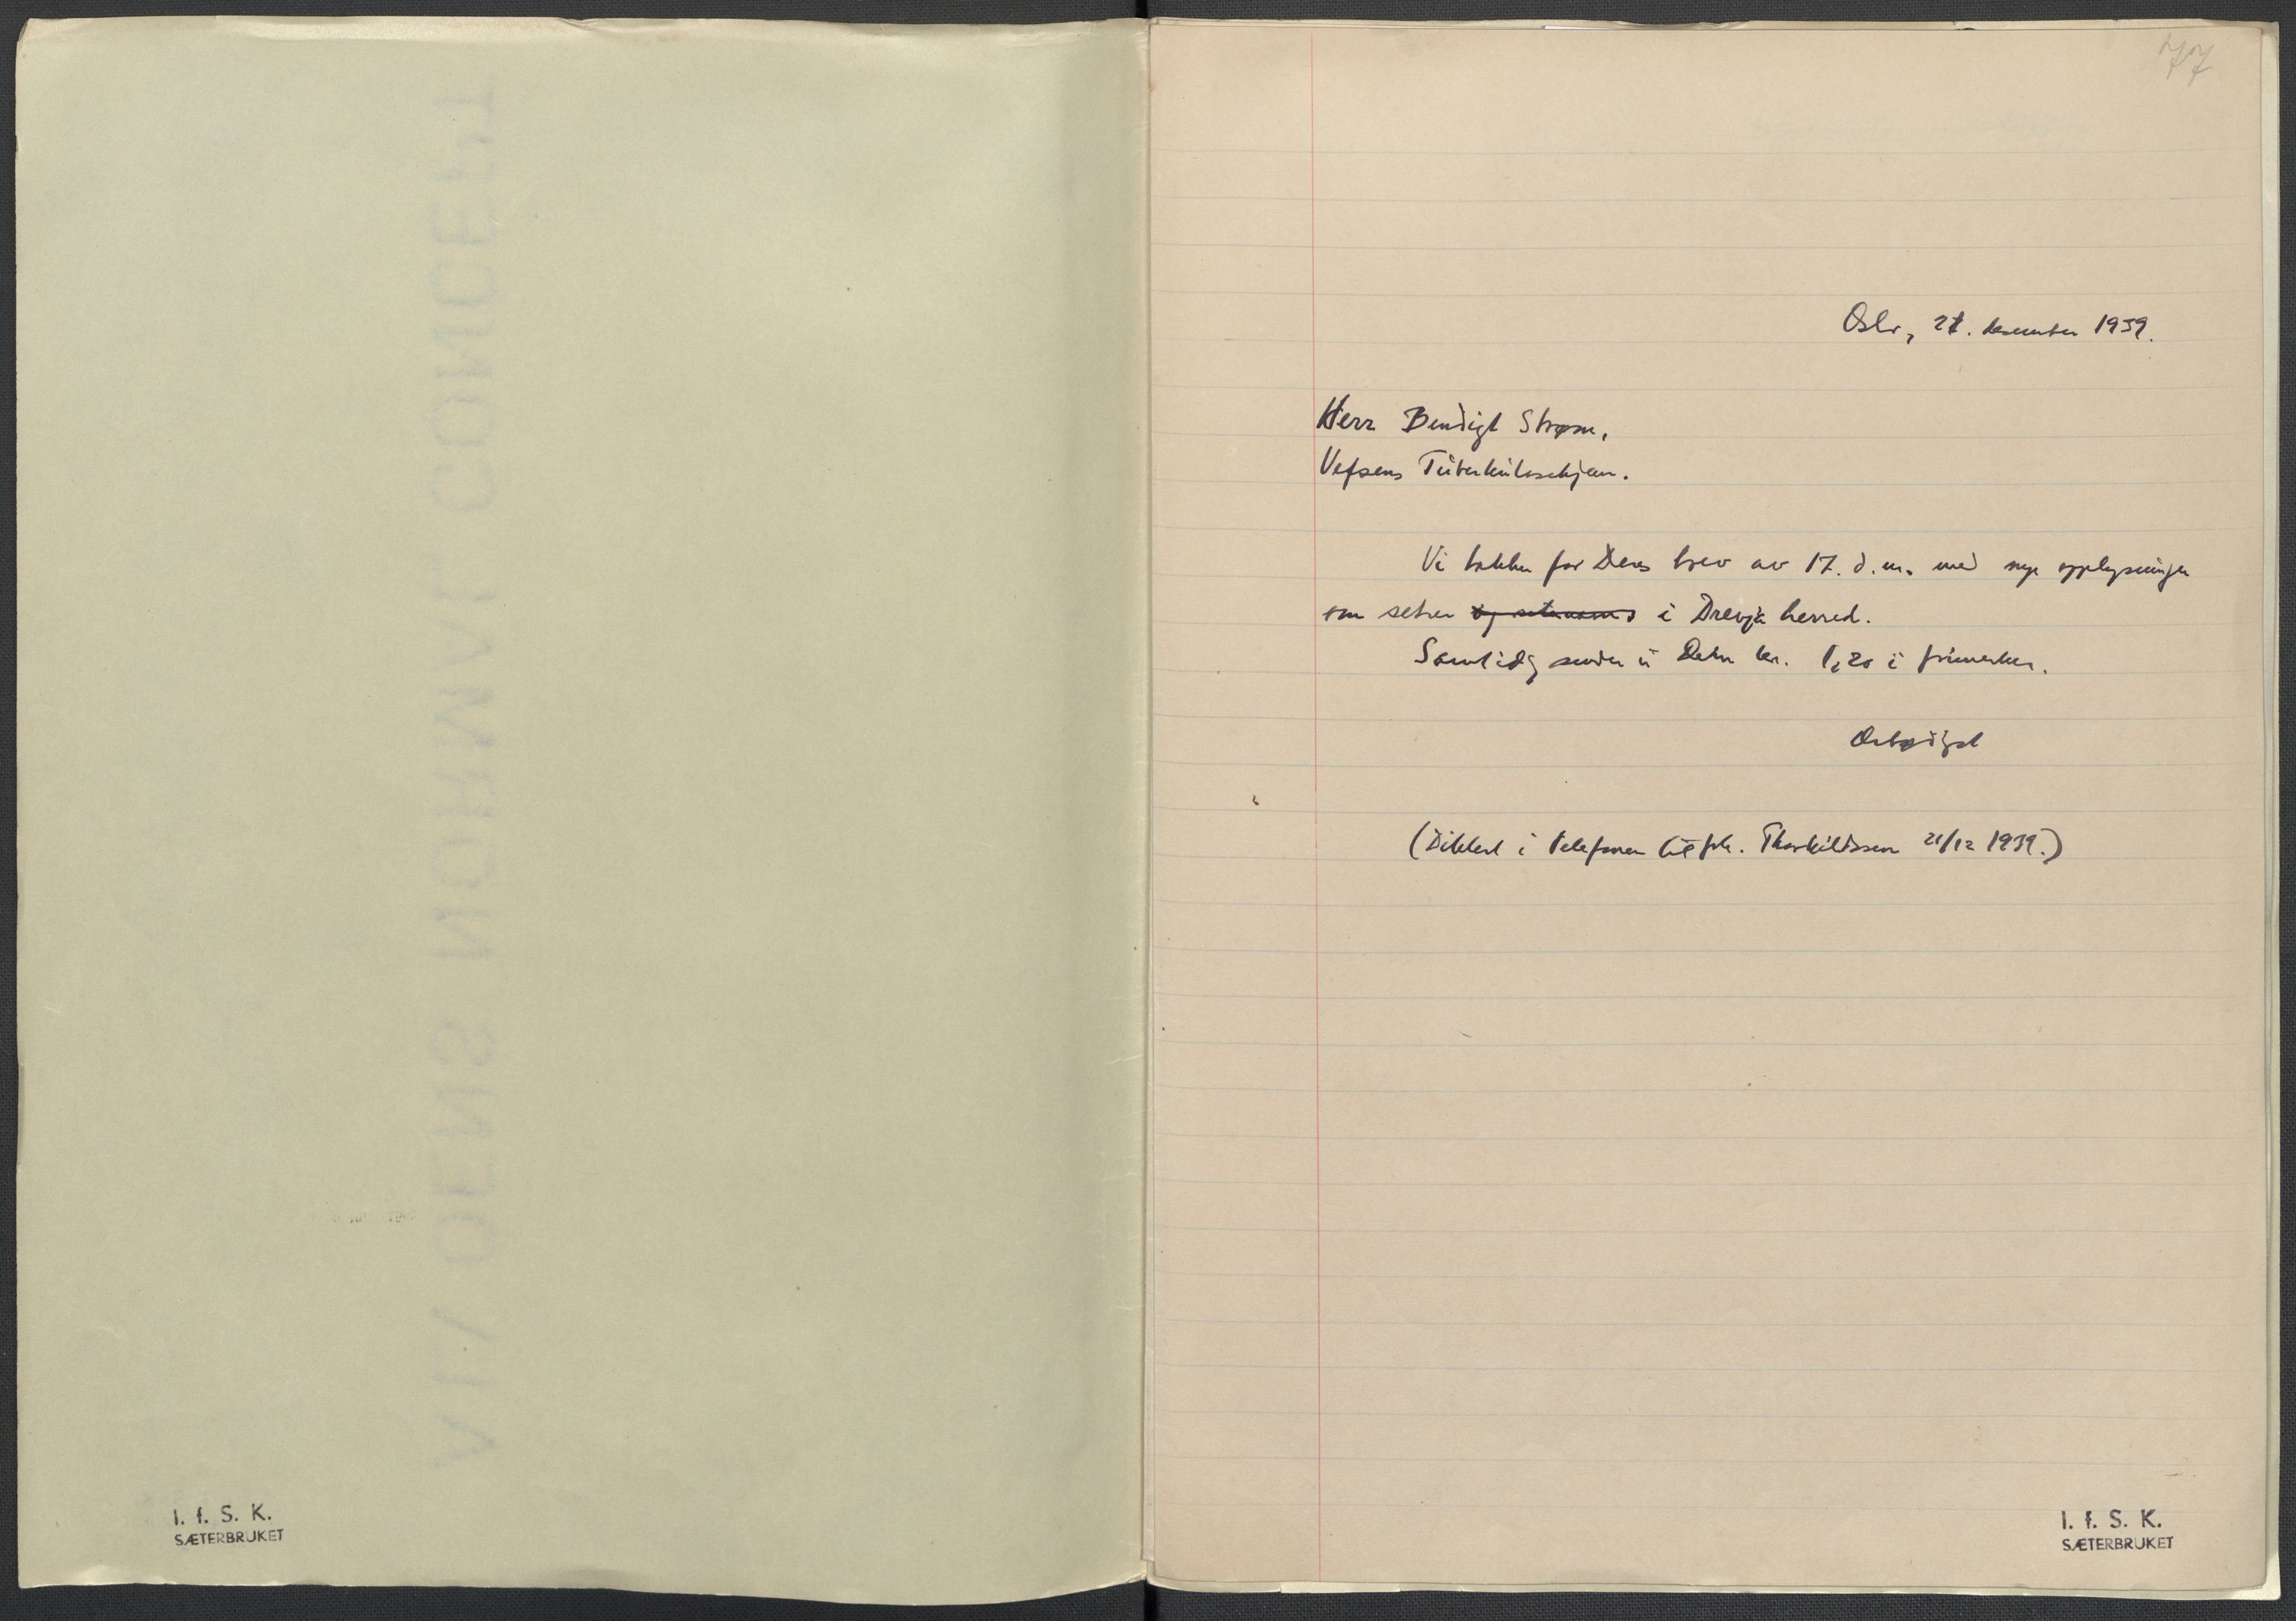 I. f. S. K.
SÆTERBRUKET
77
Oslo, 21. desember 1939.
Herr Bendigt Strøm,
Vefsens Tuberkulosehjem.
Vi takker for Deres brev av 17. d.m. med nye opplysninger
om setrer og seternavn i Drevja herred.
Samtidig sender vi Dem kr. 1,20 i frimerker.
Ærbødigst
(Diktert i telefonen til frk. Thorkildsen 21/12 1939.)
I. f. S. K.
SÆTERBRUKET